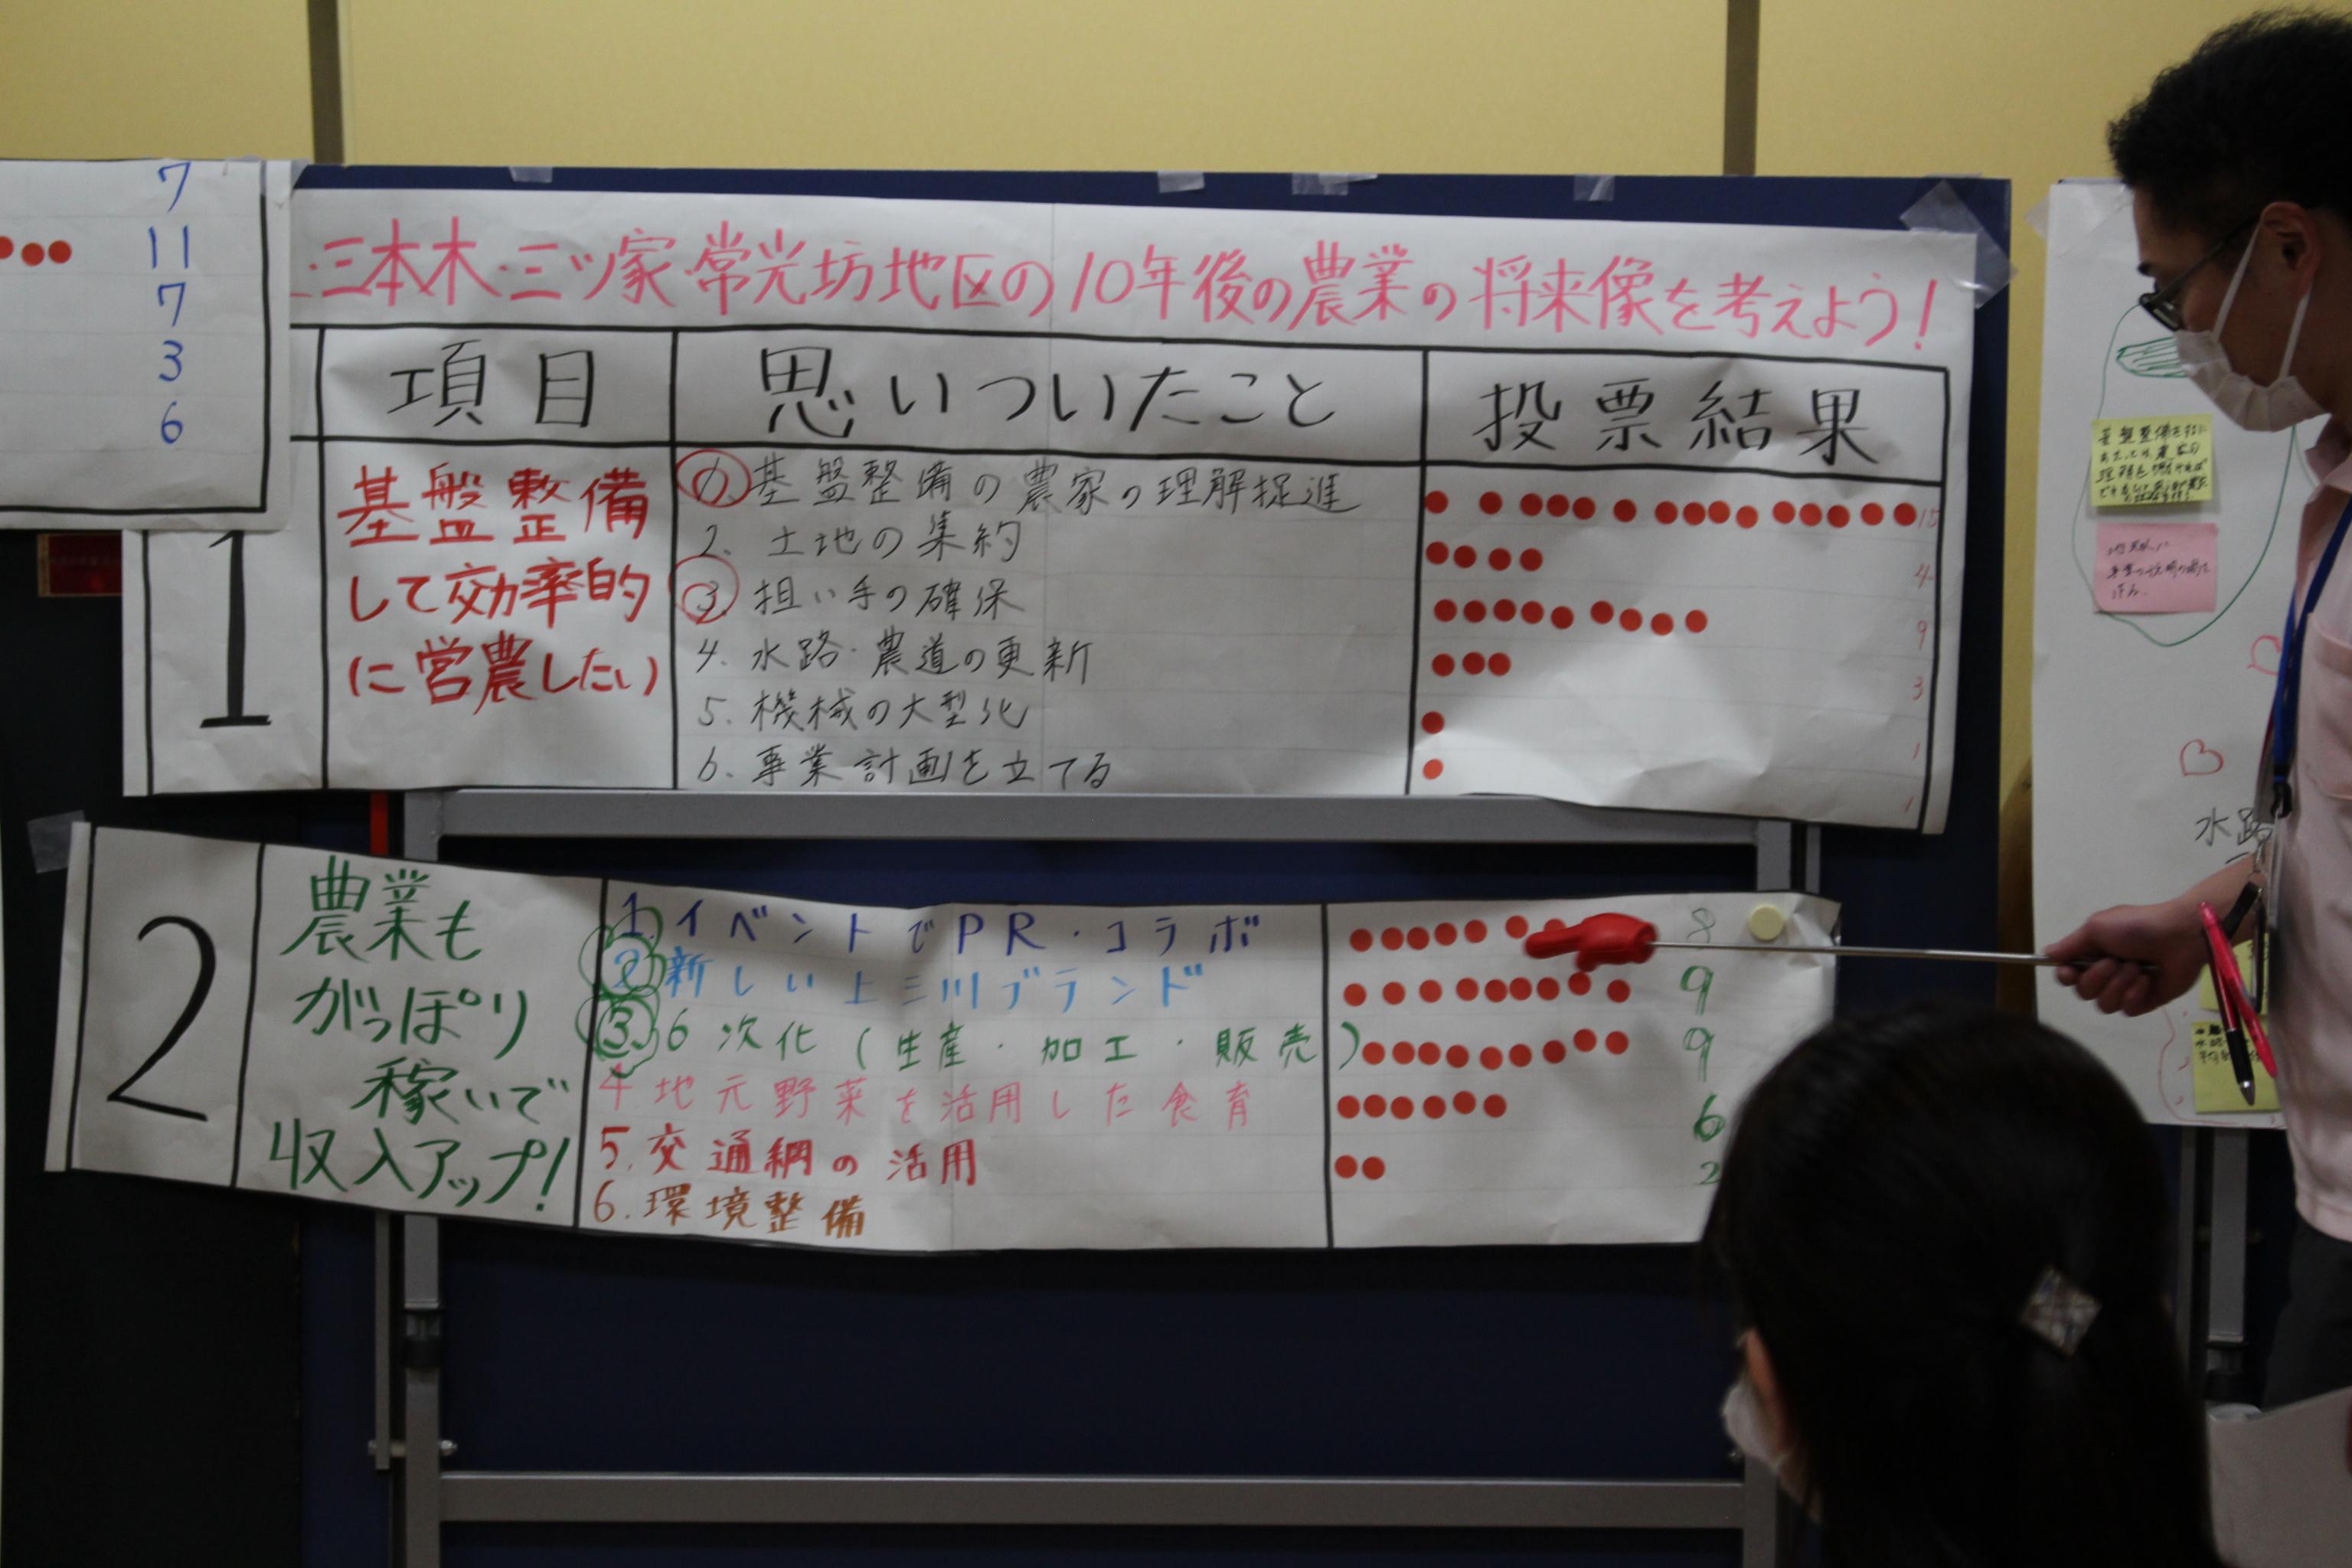 7
11
7
3
6
・三本木・三ツ家・常光坊地区の10年後の農業の将来像を考えよう!
項目 思いついたこと 投票結果
1
基盤整備
して効率的
に営農したい
1. 基盤整備の農家の理解促進 15
2. 土地の集約 4
3. 担い手の確保 9
4. 水路・農道の更新 3
5. 機械の大型化 1
6. 事業計画を立てる 1
2
農業も
がっぽり
稼いで
収入アップ!
1. イベントでPR・コラボ 8
2 新しい上三川ブランド 9
3. 6次化(生産・加工・販売) 9
4 地元野菜を活用した食育 6
5. 交通網の活用 2
6. 環境整備
水路